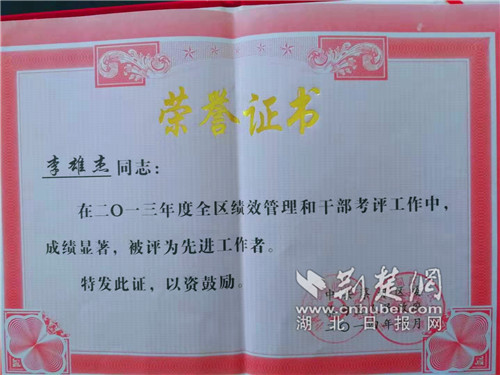 荣誉证书
李雄杰同志：
在二〇一三年度全区绩效管理和干部考评工作中，
成绩显著，被评为先进工作者。
特发此证，以资鼓励。
荆楚网
www.cnhubei.com
湖北日报网